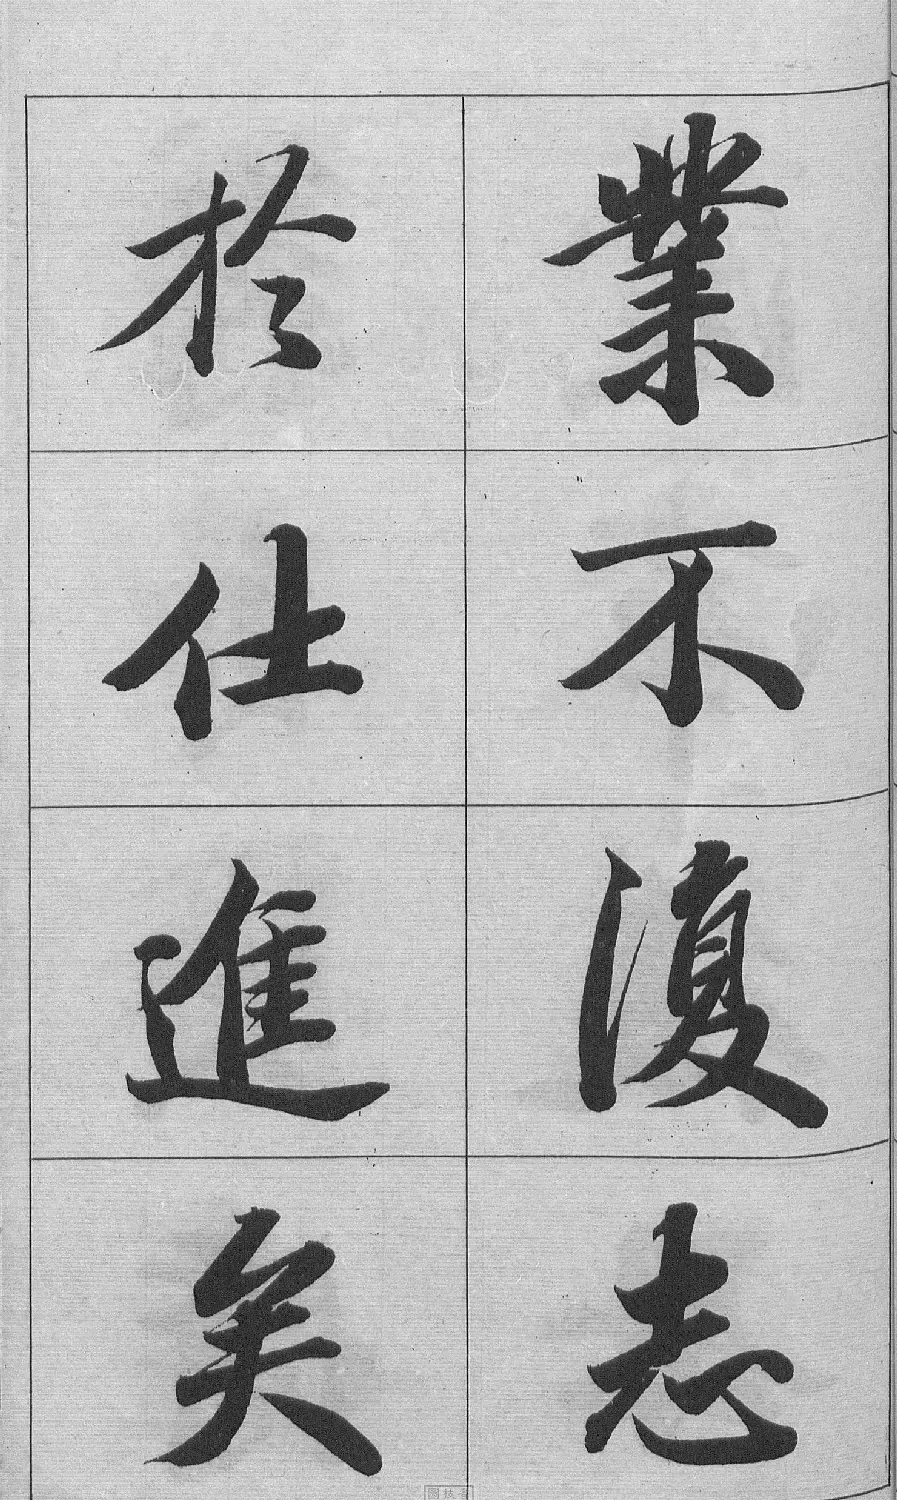 業不復志
於仕進矣